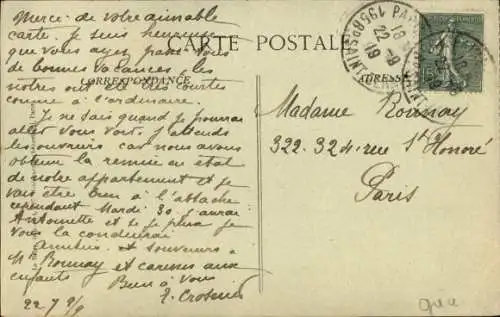 Merci de votre aimable
carte. Je suis heureuse
que vous ayez passé vous
de bonnes vacances, les
notres ont été très courtes
comme à l'ordinaire.
Je ne sais quand je pourrai
aller vous voir. J'attends
les ouvriers car nous avons
obtenu la remise en état
de notre appartement et je
vais être bien à l'attache
cependant Mardi 30 j'aurai
Antoinette et si je peux je
vous la conduirai
Amitiés et souvenirs à
Mr Rounay et caresses aux
enfants Bien à vous
22 7 9/9
CARTE POSTALE
CORRESPONDANCE
ADRESSE
Madame Rounay
322.324 rue St Honoré
Paris